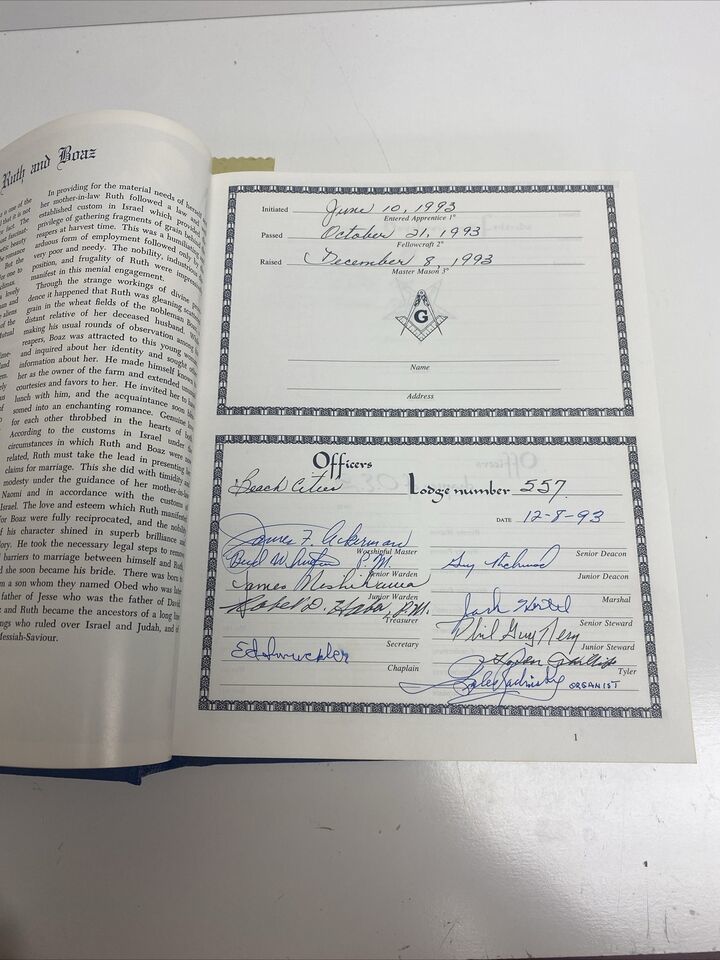 Ruth and Boaz
is one of the
that it is not
But the
for one to
a lovely
man and
aliens
of the
Mutual
In providing for the material needs of herself
her mother-in-law Ruth followed a law and
established custom in Israel which provided
privilege of gathering fragments of grain left by
reapers at harvest time. This was a humiliating
arduous form of employment followed only by the
very poor and needy. The nobility, industrious
position, and frugality of Ruth were impressively
manifest in this menial engagement.
Through the strange workings of divine provi-
dence it happened that Ruth was gleaning scattered
grain in the wheat fields of the nobleman Boaz
distant relative of her deceased husband. While
making his usual rounds of observation among the
reapers, Boaz was attracted to this young woman
and inquired about her identity and sought other
information about her. He made himself known to
her as the owner of the farm and extended unusual
courtesies and favors to her. He invited her to have
lunch with him, and the acquaintance soon blos-
somed into an enchanting romance. Genuine love
for each other throbbed in the hearts of both
According to the customs in Israel under the
circumstances in which Ruth and Boaz were
related, Ruth must take the lead in presenting her
claims for marriage. This she did with timidity and
modesty under the guidance of her mother-in-law
Naomi and in accordance with the customs of
Israel. The love and esteem which Ruth manifested
for Boaz were fully reciprocated, and the nobility
of his character shined in superb brilliance and
glory. He took the necessary legal steps to remove
barriers to marriage between himself and Ruth
and she soon became his bride. There was born to
them a son whom they named Obed who was later
father of Jesse who was the father of David
and Ruth became the ancestors of a long line
kings who ruled over Israel and Judah, and of
Messiah-Saviour.
Initiated June 10, 1993
Entered Apprentice 1°
Passed October 21, 1993
Fellowcraft 2°
Raised December 8, 1993
Master Mason 3°
G
Name
Address
Officers
Beach Cities Lodge number 557
DATE 12-8-93
James F. Ackerman
Worshipful Master
Senior Deacon
P.M.
Guy
Senior Warden
Junior Deacon
James Nishikawa
Junior Warden
Marshal
Robert D. P.M.
Jack Hertel
Treasurer
Senior Steward
Phil Guy Nery
Secretary
Junior Steward
Ed
Chaplain
Tyler
ORGANIST
1